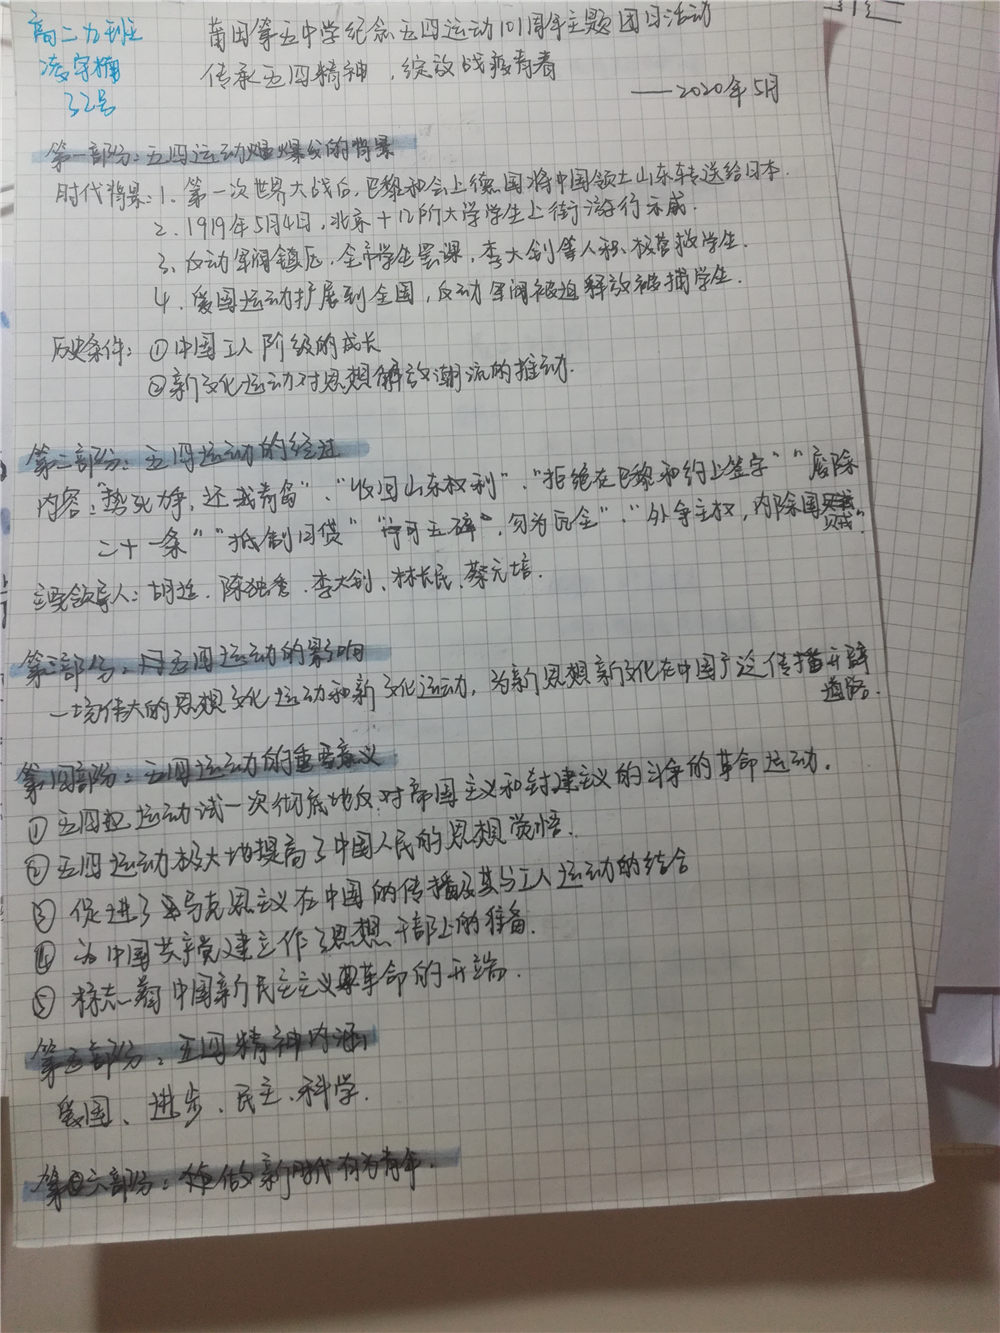 高二九班
凌宇楠
32号
莆田第五中学纪念五四运动101周年主题团日活动
传承五四精神,绽放战疫青春
——2020年5月
第一部分:五四运动爆发的背景
时代背景:1、第一次世界大战后,巴黎和会上德国将中国领土山东转送给日本.
2、1919年5月4日,北京十几所大学学生上街游行示威.
3、反动军阀镇压,全市学生罢课,李大钊等人积极营救学生.
4、爱国运动扩展到全国,反动军阀被迫释放被捕学生.
历史条件:①中国工人阶级的成长
②新文化运动对思想解放潮流的推动.
第二部分:五四运动的经过
内容:“势死力争,还我青岛”、“收回山东权利”、“拒绝在巴黎和约上签字”“废除
二十一条”“抵制日货”“宁可玉碎,勿为瓦全”、“外争主权,内除国贼”.
主要领导人:胡适、陈独秀、李大钊、林长民、蔡元培.
第三部分:五四运动的影响
一场伟大的思想文化运动和新文化运动,为新思想新文化在中国广泛传播开辟
道路.
第四部分:五四运动的重要意义
①五四运动试一次彻底地反对帝国主义和封建主义的斗争的革命运动.
②五四运动极大地提高了中国人民的思想觉悟.
③促进了马克思主义在中国的传播及其与工人运动的结合
④为中国共产党建立作了思想干部上的准备.
⑤标志着中国新民主主义革命的开端.
第五部分:五四精神内涵
爱国、进步、民主、科学.
第六部分:做新时代有为青年.